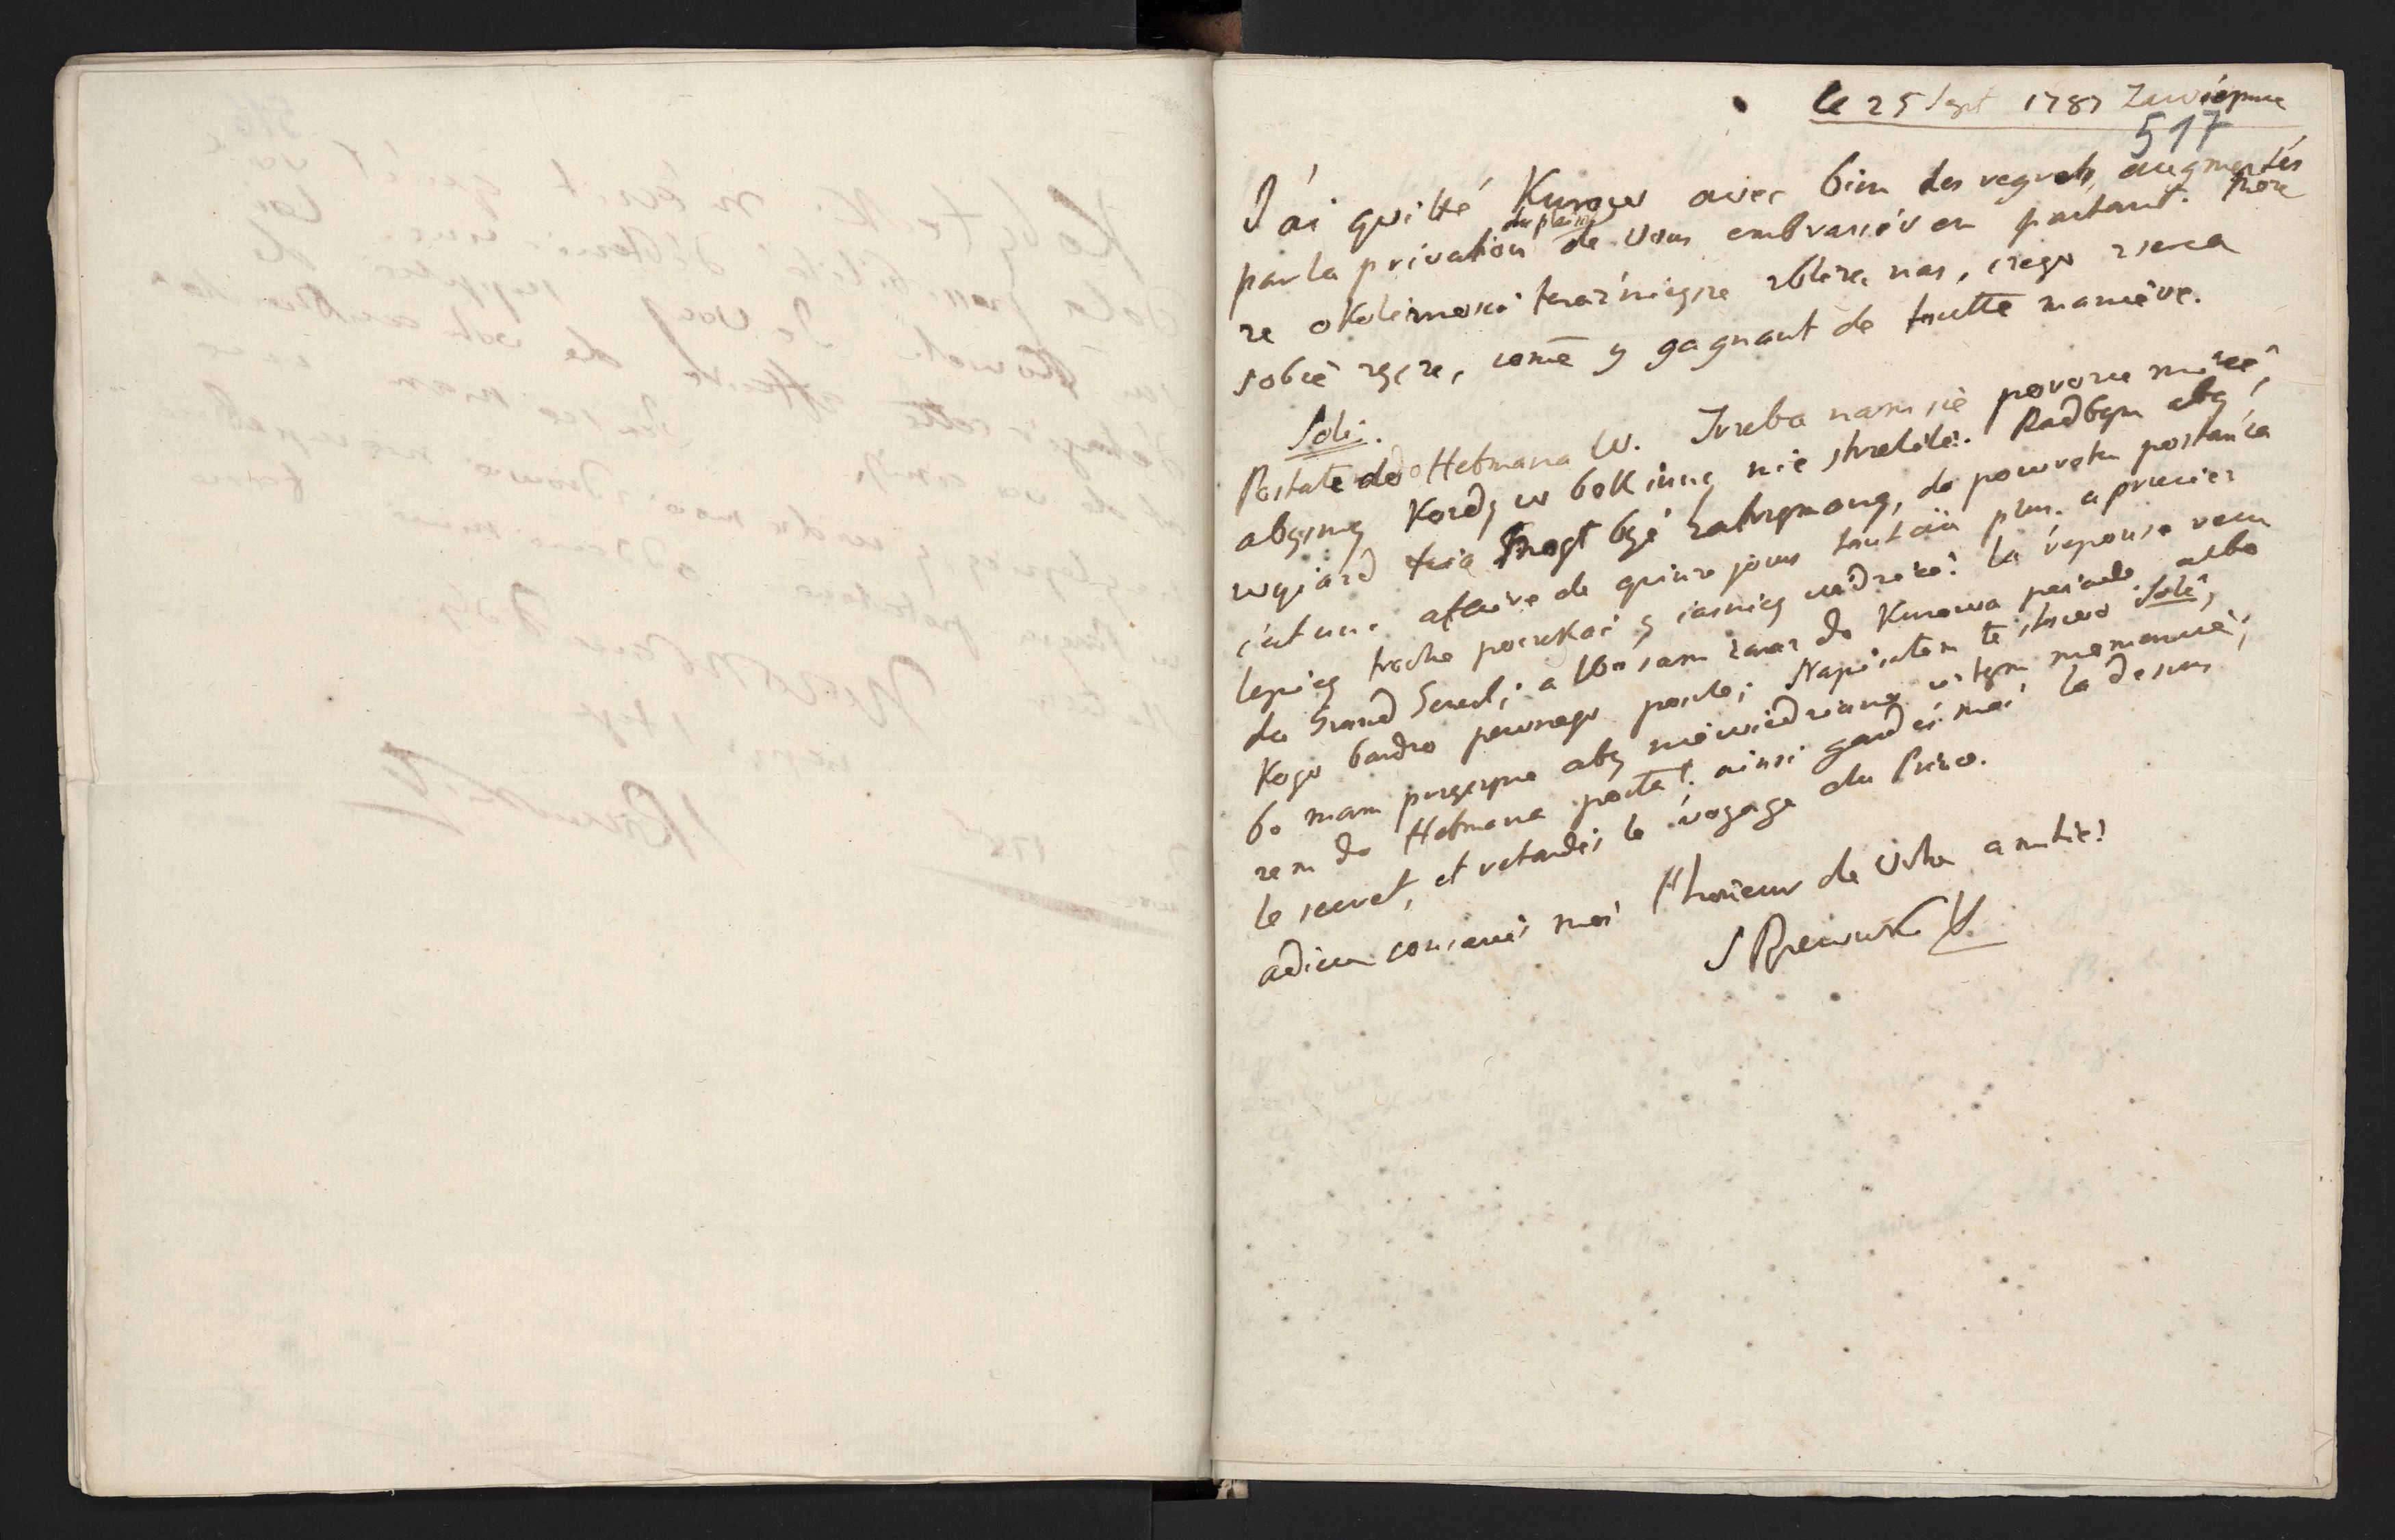 le 25 Sept 1787 Zawiéprue
517
J'ai quitté Kurow avec bien des regrets, augmentés
par la privation du plaisir de vous embrassér en partant. Może
ze okolicznosci teraznieysze zbliżą nas, czego z serca
sobie zycze, comē y gagnant de toutte maniére.
Soli.
Postałe do Hetmana W. Trzeba nam sie porozumiec,
abysmy Kozdy w bok inny nie strzelili. Radbym aby
wyiazd Xcia mogł byé zatrzymany, do powrotu posłanca
c'est une affaire de quinze jours tout au plus. a przeciez
lepiey troche poczekac y iasniey widziec. la réponse reçu
du Grand General; albo sam zaraz do Kurowa poiade albo
Kogo bardzo pewnego posle; Napisałem te słowo Soli,
bo mam przyczyne aby niewiedziano w tym momencie,
zem do Hetmana posłał; ainsi gardés moi la dessus
le secret, et retardés le voyage du Prince.
adieu conservés moi l'honieur de votre amitié!
S Rzewuski